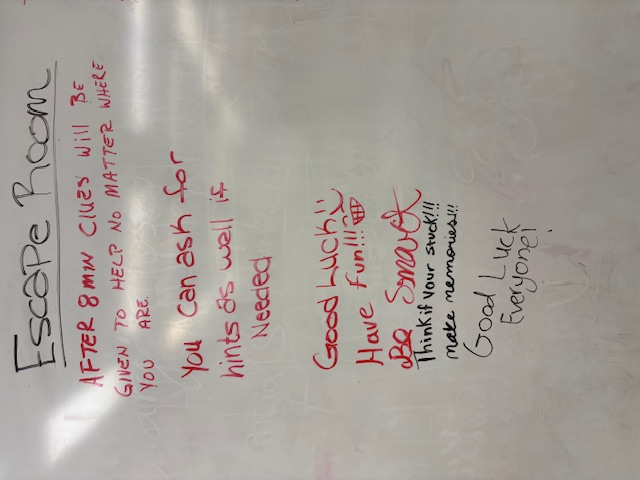 Escape Room
AFTER 8 MIN CLUES WILL BE
GIVEN TO HELP NO MATTER WHERE
YOU ARE.
You Can ask for
hints as well if
Needed
Good Luck!!
Have Fun!!!
Be Smart
Think if your stuck!!!
make memories!!!
Good Luck
Everyone!